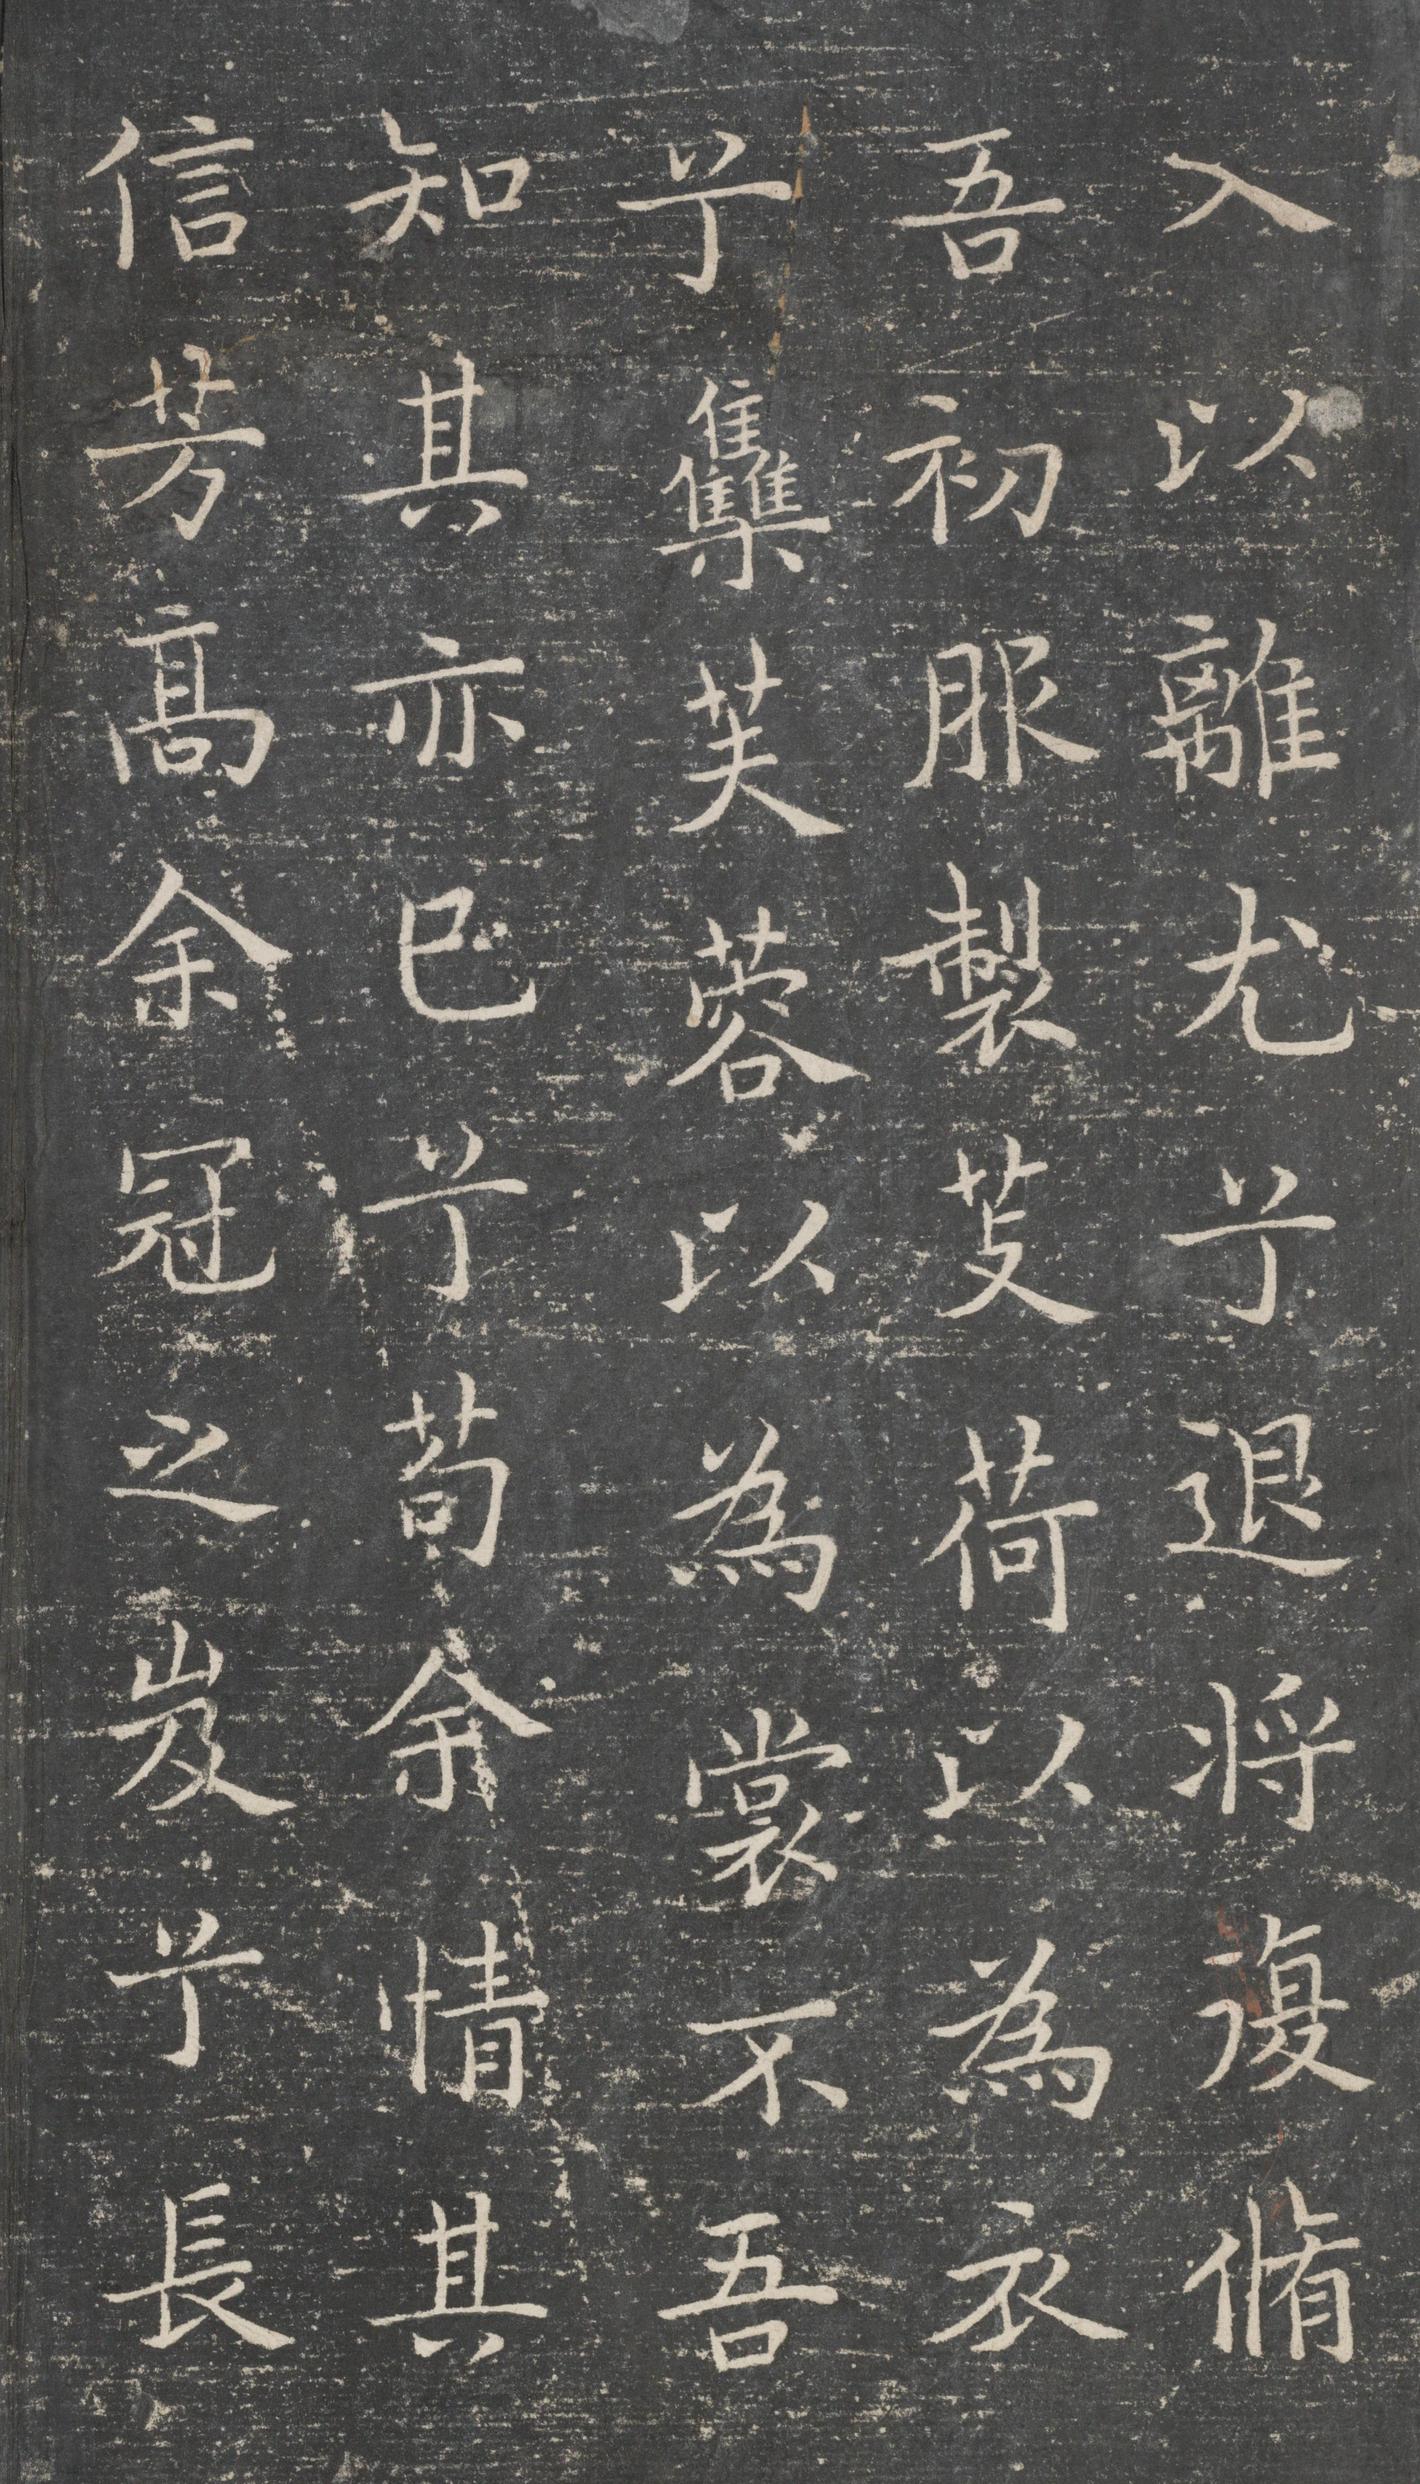 入以離尤兮退将復脩
吾初服製芰荷以為衣
兮雧芙蓉以為裳不吾
知其亦已兮苟余情其
信芳髙余冠之岌兮長